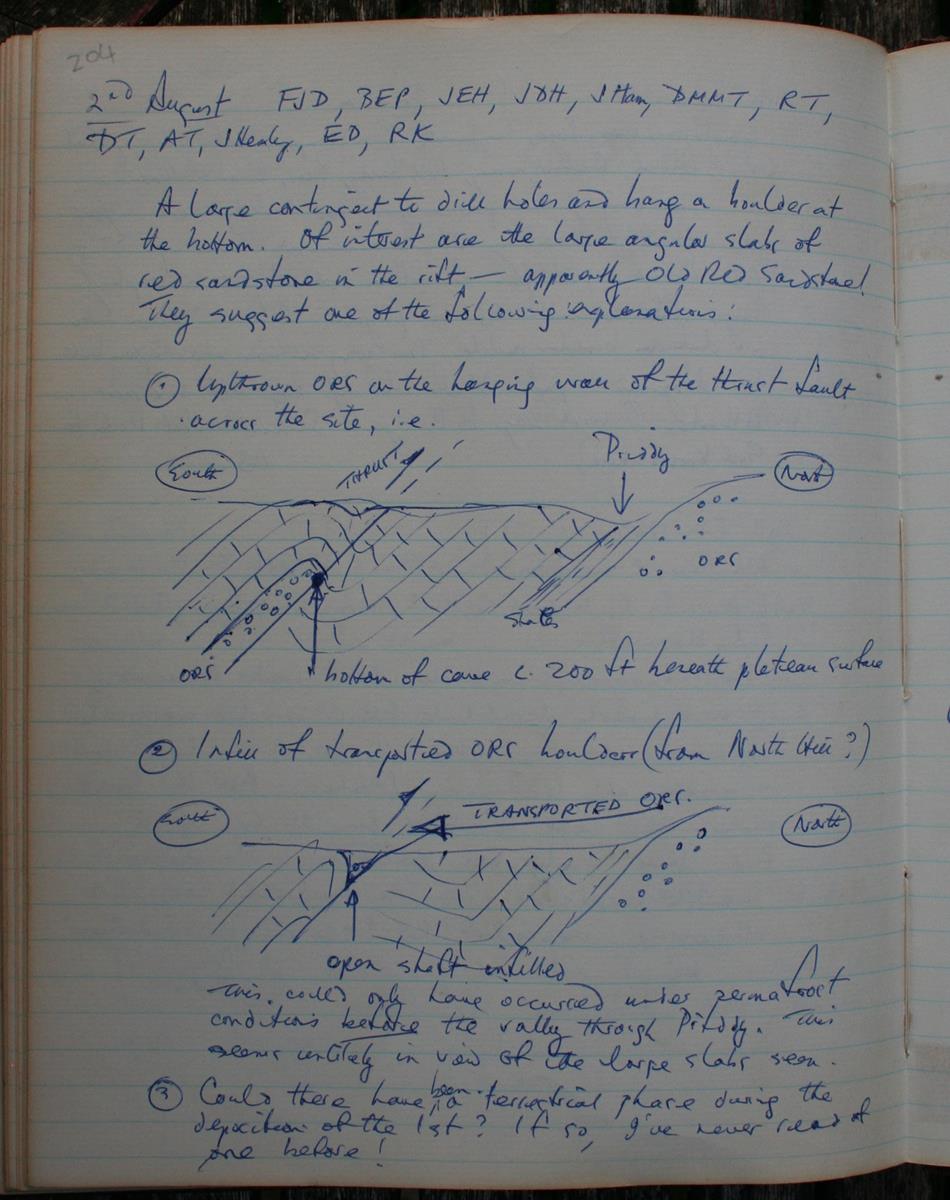 204
2nd August FJD, BEP, JEH, JDH, JHam, DMMT, RT,
DT, AT, JHealy, ED, RK
A large contingent to drill holes and hang a boulder at
the bottom. Of interest are the large angular slabs of
red sandstone in the rift — apparently Old Red Sandstone!
They suggest one of the following explanations:
① Upthrown ORS on the hanging wall of the thrust fault
across the site, i.e.
South
THRUST
Priddy
North
ORS
shales
ORS
bottom of cave c. 200 ft beneath plateau surface
② Infill of transported ORS boulders (from North Hill?)
South
TRANSPORTED ORS.
North
open shaft infilled
This could only have occurred under permafrost
conditions before the valley through Priddy. This
seems unlikely in view of the large slabs seen.
③ Could there have been a terrestrial phase during the
deposition of the lst? If so, I've never read of
one before!